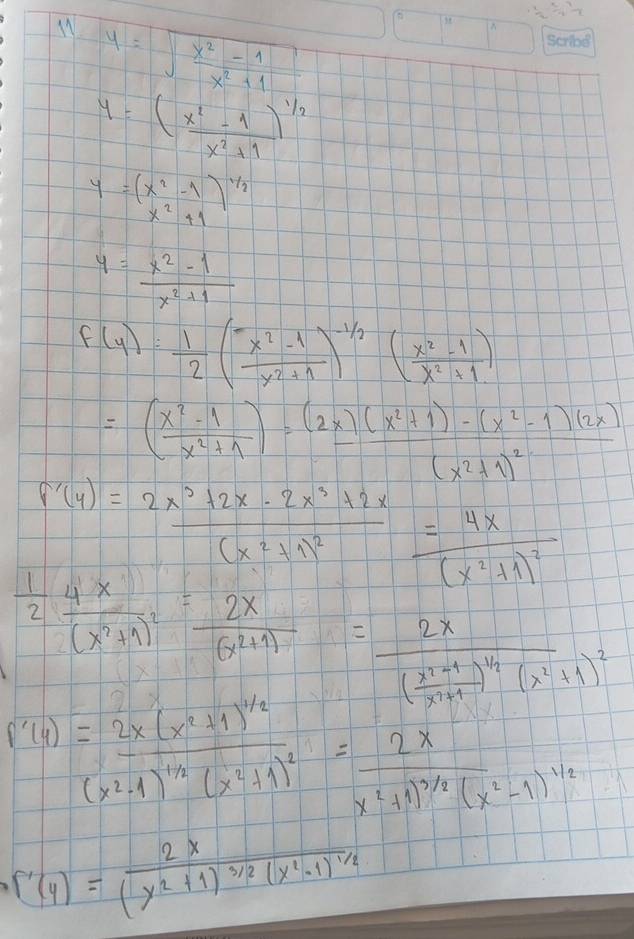 D M A
Scribe
11 y = √((x² - 1)/(x² + 1))
y = ((x² - 1)/(x² + 1))^1/2
y = (x² - 1 / x² + 1)^1/2
y = (x² - 1)/(x² + 1)
F(y) = 1/2 ((x² - 1)/(x² + 1))^-1/2 ((x² - 1)/(x² + 1))
= ((x² - 1)/(x² + 1)) = ((2x)(x² + 1) - (x² - 1)(2x))/(x² + 1)²
F'(y) = (2x³ + 2x - 2x³ + 2x)/(x² + 1)² = 4x/(x² + 1)²
1/2 4x/(x² + 1)² = 2x/(x² + 1) = 2x/(((x² - 1)/(x² + 1))^1/2 (x² + 1)²)
F'(y) = 2x(x² + 1)^1/2/((x² - 1)^1/2 (x² + 1)²) = 2x/(x² + 1)^3/2 (x² - 1)^1/2
F'(y) = 2x/((x² + 1)^3/2 (x² - 1)^1/2)